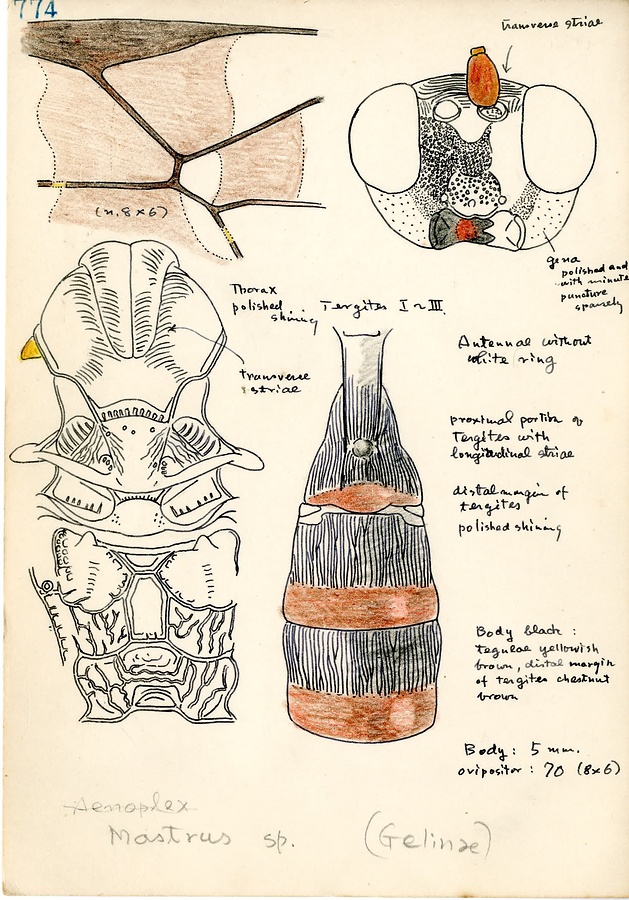 774
transverse striae
(n. 8×6)
gena
polished and
with minute
puncture
sparsely
Thorax
polished
shining
Tergites I ~ III
transverse
striae
Antennae without
white ring
proximal portion of
Tergites with
longitudinal striae
distal margin of
tergites
polished shining
Body black :
tegulae yellowish
brown, distal margin
of tergites chestnut
brown
Body : 5 mm.
ovipositor : 70 (8×6)
Aenoplex
Mastrus sp. (Gelinae)